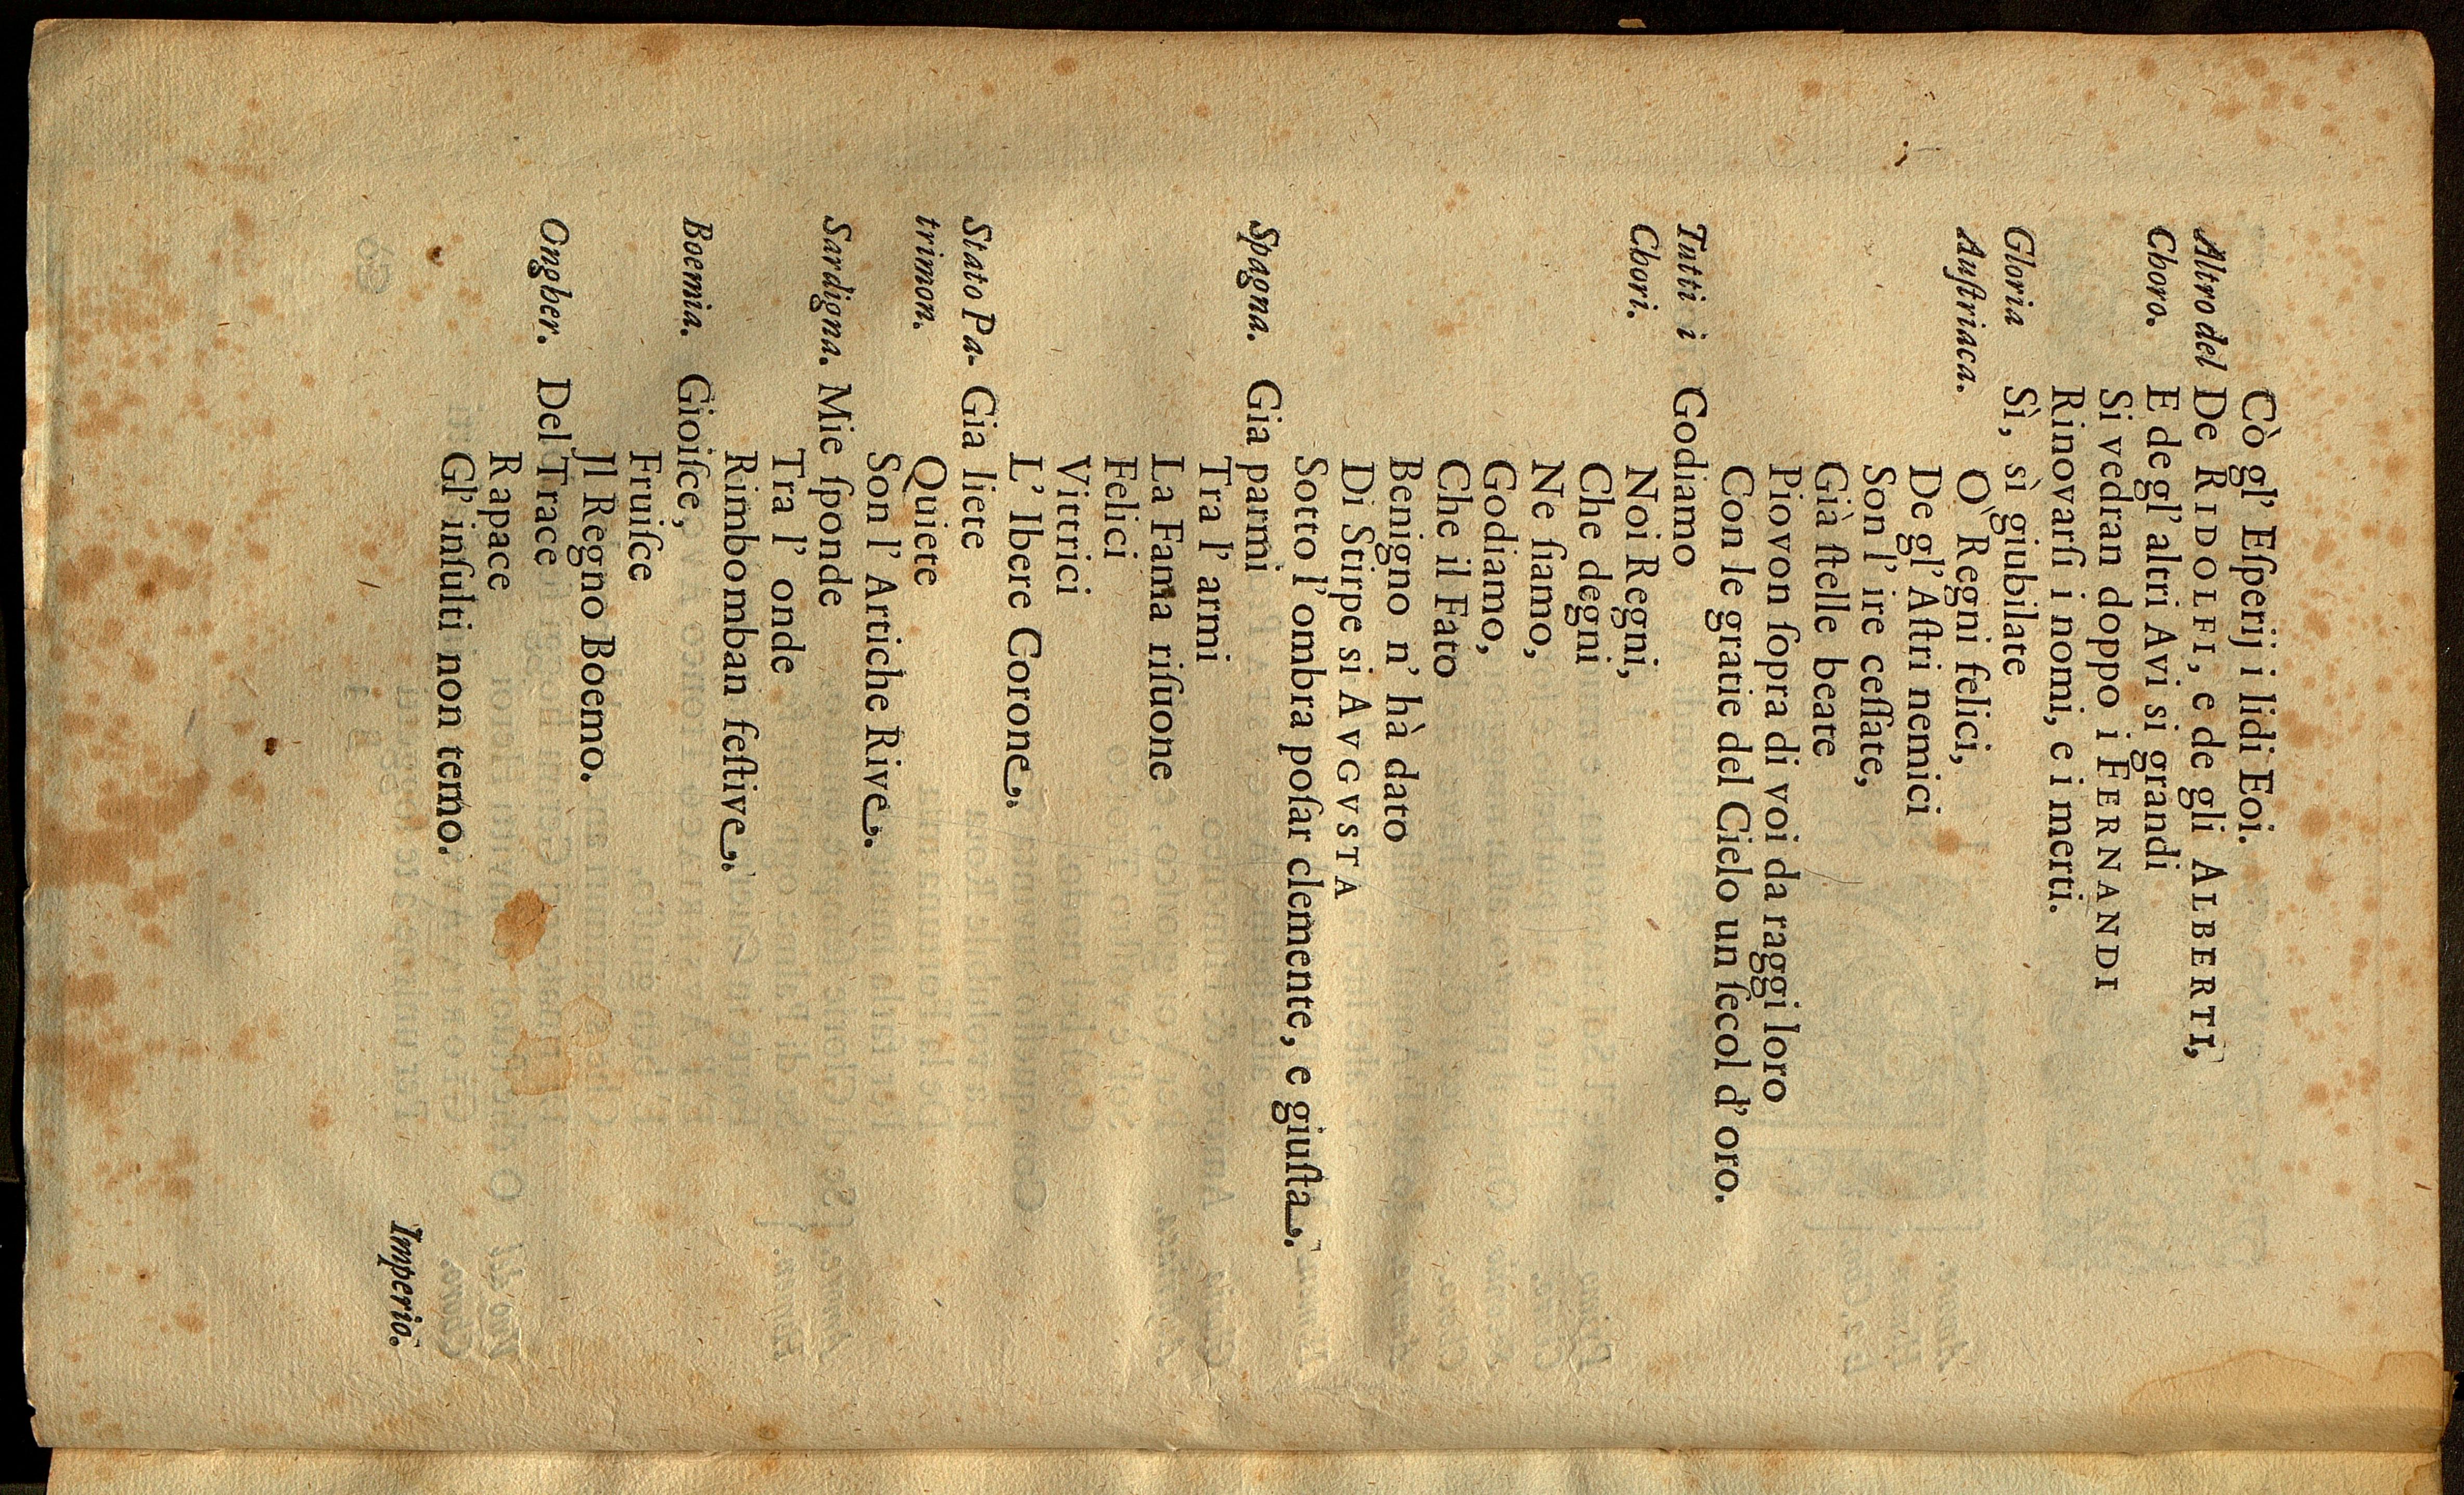 Cò gl' Eſperij i lidi Eoi.
Altro del De RIDOLFI, e de gli ALBERTI,
Choro. E de gl' altri Avi si grandi
Si vedran doppo i FERNANDI
Rinovarſi i nomi, e i merti.
Gloria Sì, sì giubilate
Auſtriaca. O' Regni felici,
De gl' Aſtri nemici
Son l' ire ceſſate,
Già ſtelle beate
Piovon ſopra di voi da raggi loro
Con le gratie del Cielo un ſecol d' oro.
Tutti i Godiamo
Chori. Noi Regni,
Che degni
Ne ſiamo,
Godiamo,
Che il Fato
Benigno n' hà dato
Di Stirpe si AVGVSTA
Sotto l' ombra poſar clemente, e giuſta.
Spagna. Gia parmi
Tra l' armi
La Fama riſuone
Felici
Vittrici
L' Ibere Corone.
Stato Pa- Gia liete
trimon. Quiete
Son l' Artiche Rive.
Sardigna. Mie ſponde
Tra l' onde
Rimbomban feſtive.
Boemia. Gioiſce,
Fruiſce
Jl Regno Boemo.
Ongher. Del Trace
Rapace
Gl' inſulti non temo.
Imperio.